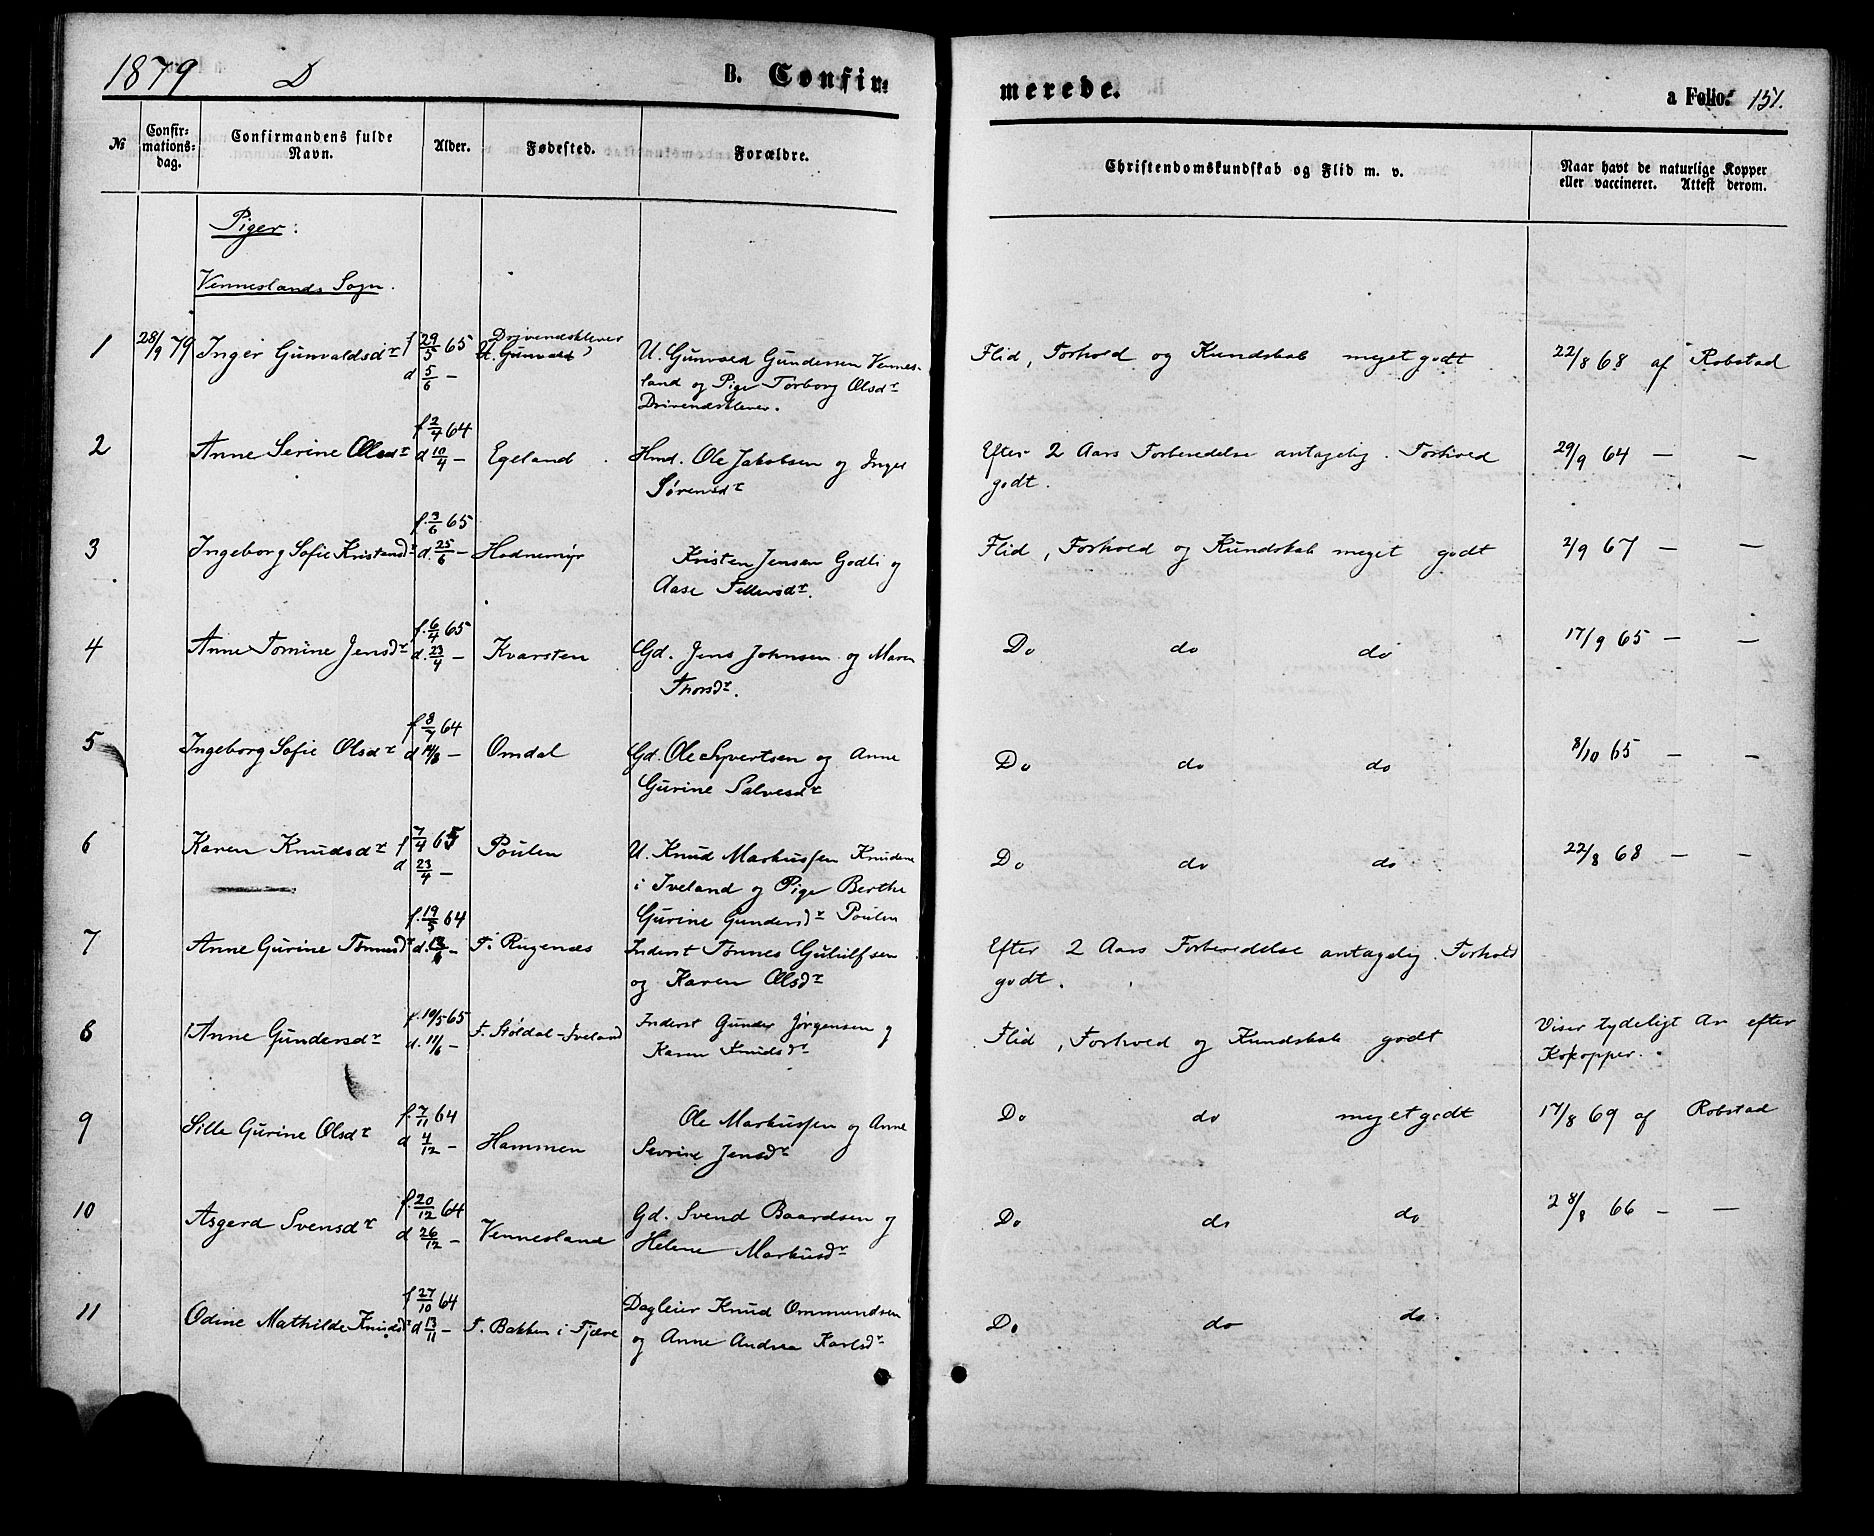 1879 D B. Confir=
merede. a Folio: 151.
№ Confir=mations=dag. Confirmandens fulde Navn. Alder. Fødested. Forældre. Christendomskundskab og Flid m. v. Naar havt de naturlige Kopper eller vaccineret. Attest derom.
Piger:
Venneslands Sogn.
1 28/9 79 Inger Gunvaldsdr f 29/5 65 Drivendesklever U. Gunvald Gundersen Vennes- Flid, Forhold og Kundskab meget godt 22/8 68 af Robstad
d 5/6 – land og Pige Torborg Olsdr
Drivendesklever.
2 Anne Serine Olsdr f 2/4 64 Egeland Hmd. Ole Jakobsen og Inger Efter 2 Aars Forberedelse antagelig. Forhold 29/9 64 – –
d 10/4 – Sørensdr godt.
3 Ingeborg Sofie Kristensdr f. 3/6 65 Hodnemyr Kristen Jensen Godli og Flid, Forhold og Kundskab meget godt 2/9 67 – –
d. 25/6 – Aase Tellevsdr.
4 Anne Tomine Jensdr f. 6/4 65 Kvarsten Gd. Jens Johnsen og Maren Do do do 17/9 65 – –
d. 23/4 – Thorsdr.
5 Ingeborg Sofie Olsdr f 8/7 64 Omdal Gd. Ole Syvertsen og Anne Do do do 8/10 65 – –
d 14/8 – Gurine Salvesdr
6 Karen Knudsdr f 7/4 65 Poulen U. Knud Markussen Knudene Do do do 22/8 68 – –
d 23/4 – i Iveland og Pige Berthe
Gurine Gundersdr Poulen
7 Anne Gurine Tønnesdr f. 19/5 64 F. Rugenæs Inderst Tønnes Gululfsen Efter 2 Aars Forberedelse antagelig. Forhold
og Karen Olsdr godt.
8 Anne Gundersdr f. 10/5 65 F. Støldal-Iveland Inderst Gunder Jørgensen og Flid, Forhold og Kundskab godt Viser tydeligt Ar efter
d. 11/6 – Karen Knudsdr Kokopper.
9 Sille Gurine Olsdr f. 7/11 64 Hammen Ole Markussen og Anne Do do meget godt 17/8 69 af Robstad
d 4/12 – Sevrine Jensdr
10 Asgerd Svensdr f. 20/12 64 Vennesland Gd. Svend Baardsen og Do do do 28/8 66 – –
d 26/12 – Helene Markusdr
11 Odine Mathilde Knudsdr f 27/10 64 F. Bakken i Fjære Dagleier Knud Ommundsen Do do do.
d 13/11 – og Anne Andrea Karlsdr